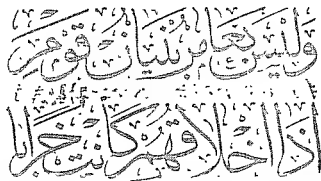 وليس بعامر بنيان قوم
إذا أخلاقهم كانت خرابا